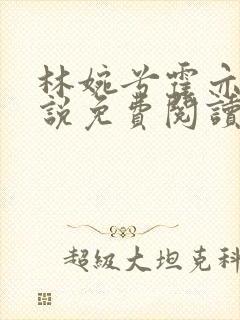 林婉兮霍亦
說免費閱讀
超級大坦克科